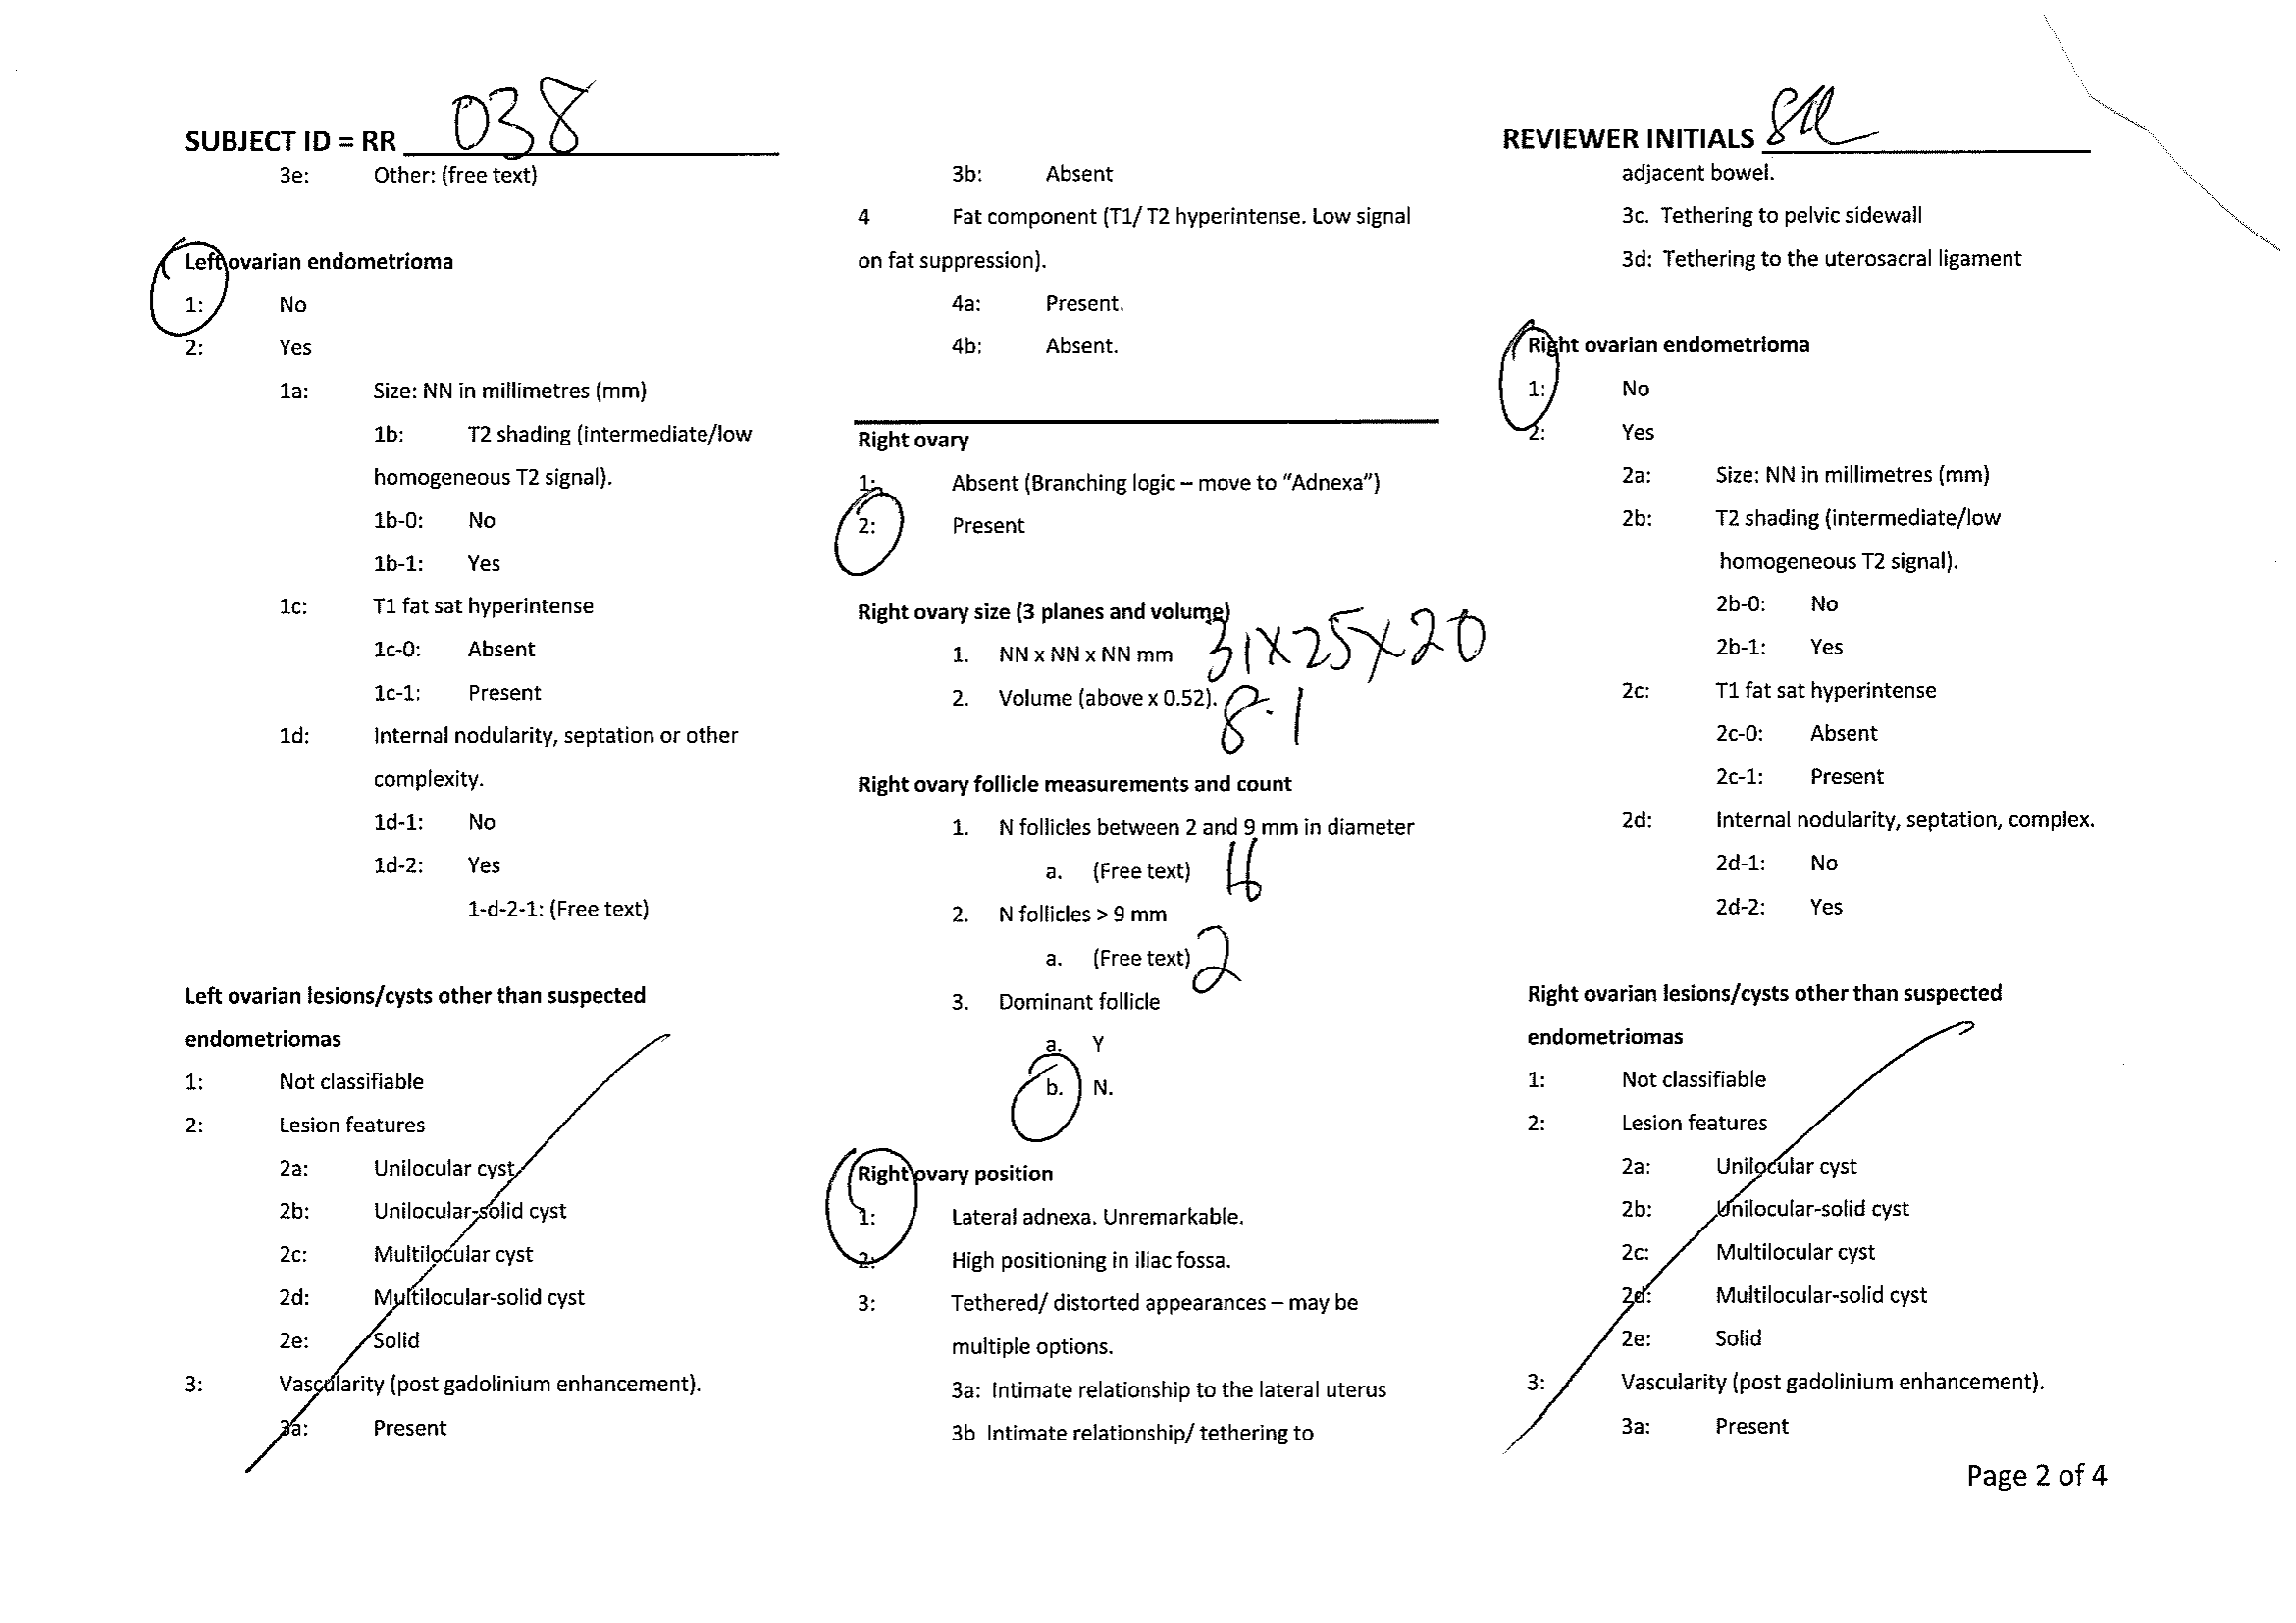 SUBJECT ID = RR 038
3e: Other: (free text)
Left ovarian endometrioma
1: No
2: Yes
1a: Size: NN in millimetres (mm)
1b: T2 shading (intermediate/low
homogeneous T2 signal).
1b-0: No
1b-1: Yes
1c: T1 fat sat hyperintense
1c-0: Absent
1c-1: Present
1d: Internal nodularity, septation or other
complexity.
1d-1: No
1d-2: Yes
1-d-2-1: (Free text)
Left ovarian lesions/cysts other than suspected
endometriomas
1: Not classifiable
2: Lesion features
2a: Unilocular cyst
2b: Unilocular-solid cyst
2c: Multilocular cyst
2d: Multilocular-solid cyst
2e: Solid
3: Vascularity (post gadolinium enhancement).
3a: Present
3b: Absent
4 Fat component (T1/ T2 hyperintense. Low signal
on fat suppression).
4a: Present.
4b: Absent.
Right ovary
1: Absent (Branching logic – move to "Adnexa")
2: Present
Right ovary size (3 planes and volume)
1. NN x NN x NN mm 31x25x20
2. Volume (above x 0.52). 8.1
Right ovary follicle measurements and count
1. N follicles between 2 and 9 mm in diameter
a. (Free text)
2. N follicles > 9 mm
a. (Free text) 2
3. Dominant follicle
a. Y
b. N.
Right ovary position
1: Lateral adnexa. Unremarkable.
2: High positioning in iliac fossa.
3: Tethered/ distorted appearances – may be
multiple options.
3a: Intimate relationship to the lateral uterus
3b Intimate relationship/ tethering to
REVIEWER INITIALS
adjacent bowel.
3c. Tethering to pelvic sidewall
3d: Tethering to the uterosacral ligament
Right ovarian endometrioma
1: No
2: Yes
2a: Size: NN in millimetres (mm)
2b: T2 shading (intermediate/low
homogeneous T2 signal).
2b-0: No
2b-1: Yes
2c: T1 fat sat hyperintense
2c-0: Absent
2c-1: Present
2d: Internal nodularity, septation, complex.
2d-1: No
2d-2: Yes
Right ovarian lesions/cysts other than suspected
endometriomas
1: Not classifiable
2: Lesion features
2a: Unilocular cyst
2b: Unilocular-solid cyst
2c: Multilocular cyst
2d: Multilocular-solid cyst
2e: Solid
3: Vascularity (post gadolinium enhancement).
3a: Present
Page 2 of 4